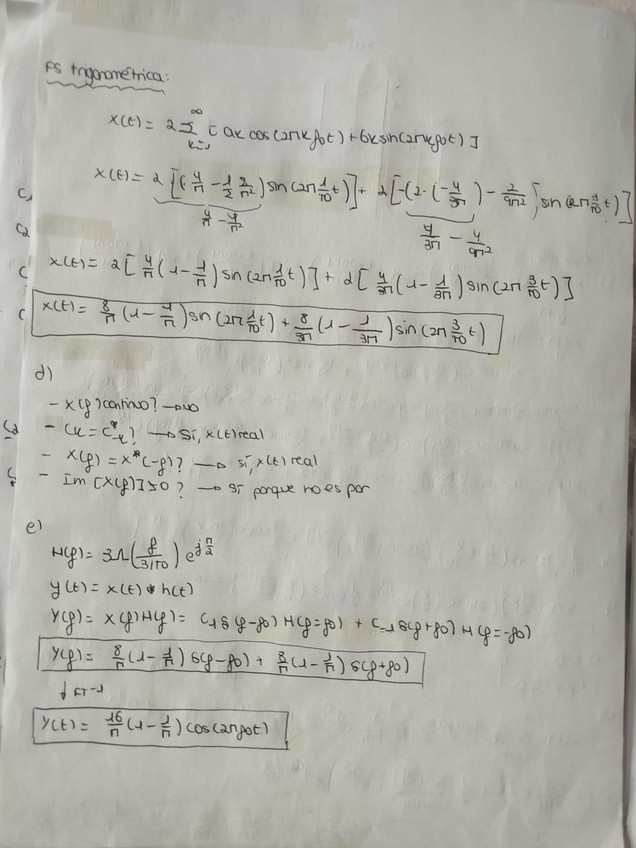 FS trigonométrica:
x(t) = 2 ∞ Σ k=1 [ ak cos(2πkf0t) + bk sin(2πkf0t) ]
x(t) = 2 [ ( 4/π - 1/2 8/π² ) sin(2π 1/T0 t) ] + 2 [ -( 2 · ( -4/3π ) - 2/9π² ] sin(2π 3/T0 t) ]
4/π - 4/π² 4/3π - 4/9π²
x(t) = 2 [ 4/π (1 - 1/π) sin(2π 1/T0 t) ] + 2 [ 4/3π (1 - 1/3π) sin(2π 3/T0 t) ]
x(t) = 8/π (1 - 1/π) sin(2π 1/T0 t) + 8/3π (1 - 1/3π) sin(2π 3/T0 t)
d)
- X(f) continuo? → NO
- Ck = C*-k? → Sí, x(t) real
- X(f) = X*(-f)? → sí, x(t) real
- Im [X(f)] ≠ 0? → sí porque no es par
e)
H(f) = 3Λ( f / 3/T0 ) e^jπ/2
y(t) = x(t) * h(t)
Y(f) = X(f)H(f) = C1 δ(f-f0) H(f=f0) + C-1 δ(f+f0) H(f=-f0)
Y(f) = 8/π (1 - 1/π) δ(f-f0) + 8/π (1 - 1/π) δ(f+f0)
↓ FT-1
y(t) = 16/π (1 - 1/π) cos(2πf0t)